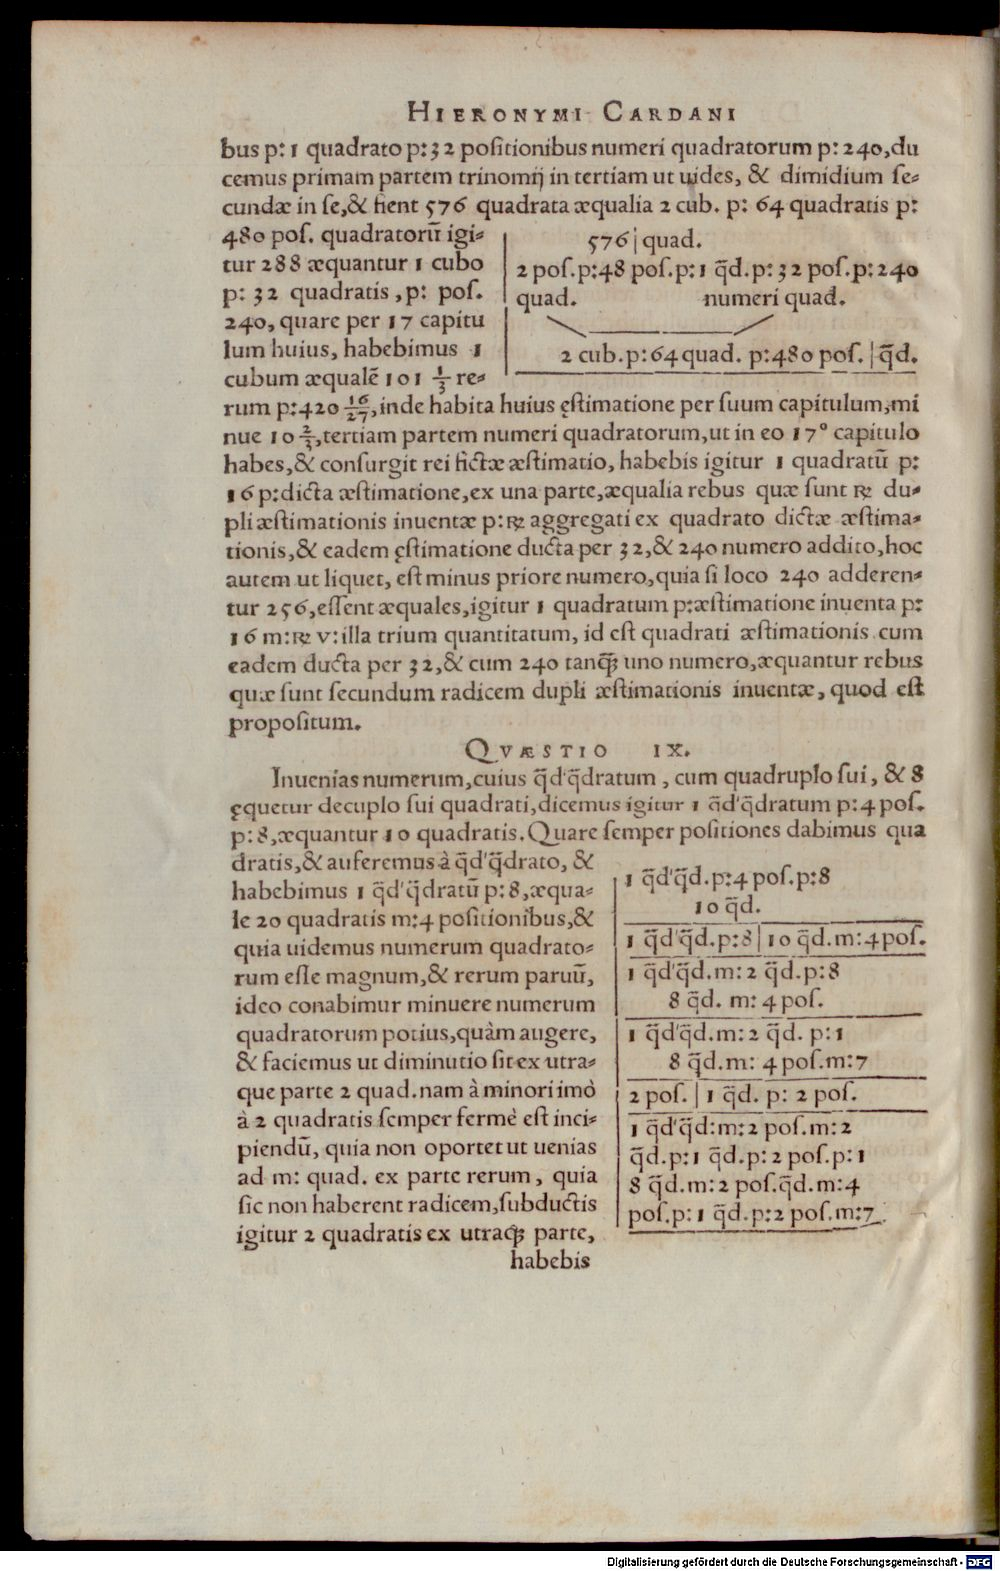 HIERONYMI CARDANI
bus p: 1 quadrato p: 32 positionibus numeri quadratorum p: 240, du
cemus primam partem trinomij in tertiam ut uides, & dimidium se-
cundæ in se, & fient 576 quadrata æqualia 2 cub. p: 64 quadratis p:
480 pos. quadratorũ igi-
tur 288 æquantur 1 cubo
p: 32 quadratis, p: pos.
240, quare per 17 capitu
lum huius, habebimus 1
cubum æqualẽ 101 1/3 re-
576 | quad.
2 pos. p: 48 pos. p: 1 q̃d. p: 32 pos. p: 240
quad. numeri quad.
2 cub. p: 64 quad. p: 480 pos. | q̃d.
rum p: 420 16/27, inde habita huius ęstimatione per suum capitulum, mi
nue 10 2/3, tertiam partem numeri quadratorum, ut in eo 17° capitulo
habes, & consurgit rei fictæ æstimatio, habebis igitur 1 quadratũ p:
16 p: dicta æstimatione, ex una parte, æqualia rebus quæ sunt ℞ du-
pli æstimationis inuentæ p: ℞ aggregati ex quadrato dictæ æstima-
tionis, & eadem ęstimatione ducta per 32, & 240 numero addito, hoc
autem ut liquet, est minus priore numero, quia si loco 240 adderen-
tur 256, essent æquales, igitur 1 quadratum p: æstimatione inuenta p:
16 m: ℞ v: illa trium quantitatum, id est quadrati æstimationis cum
eadem ducta per 32, & cum 240 tanq̃ uno numero, æquantur rebus
quæ sunt secundum radicem dupli æstimationis inuentæ, quod est
propositum.
QVÆSTIO IX.
Inuenias numerum, cuius q̃d'q̃dratum, cum quadruplo sui, & 8
ęquetur decuplo sui quadrati, dicemus igitur 1 q̃d'q̃dratum p: 4 pos.
p: 8, æquantur 10 quadratis. Quare semper positiones dabimus qua
dratis, & auferemus à q̃d'q̃drato, &
habebimus 1 q̃d'q̃dratũ p: 8, æqua-
le 20 quadratis m: 4 positionibus, &
quia uidemus numerum quadrato-
rum esse magnum, & rerum paruũ,
ideo conabimur minuere numerum
quadratorum potius, quàm augere,
& faciemus ut diminutio sit ex utra-
que parte 2 quad. nam à minori imò
à 2 quadratis semper fermè est inci-
piendũ, quia non oportet ut uenias
ad m: quad. ex parte rerum, quia
sic non haberent radicem, subductis
igitur 2 quadratis ex utraq; parte,
1 q̃d'q̃d. p: 4 pos. p: 8
10 q̃d.
1 q̃d'q̃d. p: 8 | 10 q̃d. m: 4 pos.
1 q̃d'q̃d. m: 2 q̃d. p: 8
8 q̃d. m: 4 pos.
1 q̃d'q̃d. m: 2 q̃d. p: 1
8 q̃d. m: 4 pos. m: 7
2 pos. | 1 q̃d. p: 2 pos.
1 q̃d'q̃d: m: 2 pos. m: 2
q̃d. p: 1 q̃d. p: 2 pos. p: 1
8 q̃d. m: 2 pos. q̃d. m: 4
pos. p: 1 q̃d. p: 2 pos. m: 7
habebis
Digitalisierung gefördert durch die Deutsche Forschungsgemeinschaft - DFG